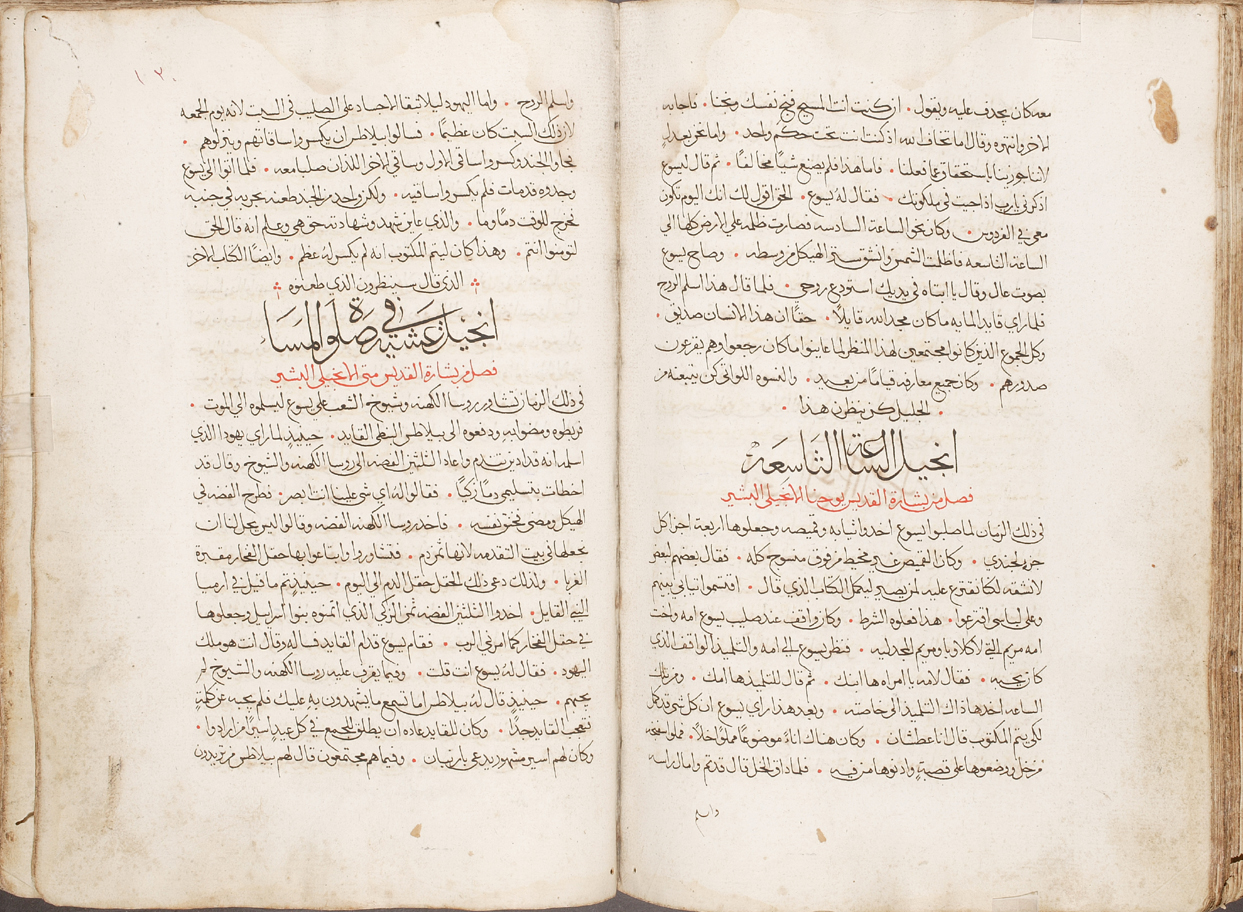 معه كان يجدف عليه ويقول • ان كنت انت المسيح فنج نفسك ونجنا • فاجابه
الاخر وانتهره وقال اما تخاف الله اذ كنت انت تحت حكم واحد • واما نحن بعدل
لاننا جوزينا باستحقاق وبما فعلنا • فاما هذا فلم يصنع شيًا مخالفًا • ثم قال ليسوع
اذكرني يا رب اذا جيت في ملكوتك • فقال له يسوع • الحق اقول لك انك اليوم تكون
معي في الفردوس • وكان نحو الساعة السادسه فصارت ظلمه علي الارض كلها الي
الساعة التاسعه فاظلمت الشمس وانشق ستر الهيكل من وسطه • وصاح يسوع
بصوت عال وقال يا ابتاه في يديك استودع روحي • فلما قال هذا اسلم الروح
فلما راي قايد المايه ما كان مجد الله قايلًا • حقًا ان هذا الانسان صديق •
وكل الجموع الذين كانوا مجتمعين لهذا المنظر لما عاينوا ما كان رجعوا وهم يقرعون
صدورهم • وكان جميع معارفه قيامًا من بعيد • والنسوه اللواتي كن يتبعنه من
• الجليل كن ينظرن هذا •
انجيل الساعة التاسعة
فصل من بشارة القديس يوحنا الانجيلي البشير
في ذلك الزمان لما صلبوا ليسوع اخدوا ثيابه وقميصه وجعلوها اربعة اجزا كل
جزو لجندي • وكان القميص غير مخيط من فوق منسوج كله • فقال بعضهم لبعض
لا نشقه لكنا نقترع عليه لمن يصير ليكمل الكتاب الذي قال • اقتسموا ثيابي بينهم
وعلى لباسي اقترعوا • هذا فعلوه الشرط • وكان واقف عند صليب يسوع امه واخت
امه مريم التي لاكلاوبا ومريم المجدليه • فنظر يسوع الي امه والتلميذ الواقف الذي
كان يحبه • فقال لامه يا امراه ها ابنك • ثم قال للتلميذ ها امك • ومن تلك
الساعه اخدها ذاك التلميذ الى خاصته • وبعد هذا راي يسوع ان كل شي قد كمل
لكي يتم المكتوب قال انا عطشان • وكان هناك اناءً موضوعًا مملوًا خلًا • فملوا اسفنجه
من خل ووضعوها على قصبةٍ وادنوها من فيه • فلما ذاق الخل قال قد تم وامال راسه
واسلم
١٢٠
واسلم الروح • واما اليهود ليلا تبقا الاجساد على الصليب في السبت لانه يوم الجمعه
لان ذلك السبت كان عظيمًا • فسالوا بيلاطس ان يكسروا ساقاتهم وينزلوهم •
فجاوا الجند وكسروا ساقي الاول وساقي الاخر اللذان صلبا معه • فلما اتوا الي يسوع
وجدوه قد مات فلم يكسروا ساقيه • ولكن واحد من الجند طعنه بحربه في جنبه
فخرج للوقت دمًا وما • والذي عاين شهد وشهادته حق هي وعلم انه قال الحق
لتومنوا انتم • وهذا كان ليتم المكتوب انه لم يكسر له عظم • وايضًا الكتاب الاخر
الذي قال سينظرون الذي طعنوه
انجيل عشية في صلوة المساء
فصل من بشارة القديس متى الانجيلي البشير
في ذلك الزمان تشاور روسا الكهنه وشيوخ الشعب على يسوع ليسلموه الي الموت •
فربطوه ومضوا به ودفعوه الى بيلاطس النبطي القايد • حينيذٍ لما راي يهودا الذي
اسلمه انه قد ادين تندم واعاد الثلثين الفضه الى روسا الكهنه والشيوخ • وقال قد
اخطات بتسليمي دمًا زكيًا • فقالوا له اي شي علينا انت ابصر • فطرح الفضه في
الهيكل ومضى فخنق نفسه • فاخد روسا الكهنه الفضه وقالوا ليس يحل لنا ان
نجعلها في بيت التقدمه لانها ثمن دم • فتشاوروا وابتاعوا بها حقل الفخار مقبرة
الغربا • ولذلك دعي ذلك الحقل حقل الدم الي اليوم • حينيذٍ تم ما قيل في ارميا
النبي القايل • اخدوا الثلثين الفضه ثمن الزكي الذي اثمنوه بنوا اسراييل وجعلوها
في حقل الفخار كما امرني الرب • فقام يسوع قدام القايد فساله وقال انت هو ملك
اليهود • فقال له يسوع انت قلت • وفيما يقرف عليه روسا الكهنه والشيوخ لم
يجبهم • حينيذٍ قال له بيلاطس اما تسمع ما يشهدون به عليك فلم يجبه عن كلمةٍ
فتعجب القايد جدًا • وكان للقايد عاده ان يطلق للجمع في كل عيدٍ اسيرًا من ارادوا •
وكان لهم اسير مشهور يدعي باربان • وفيما هم مجتمعون قال لهم بيلاطس من تريدون